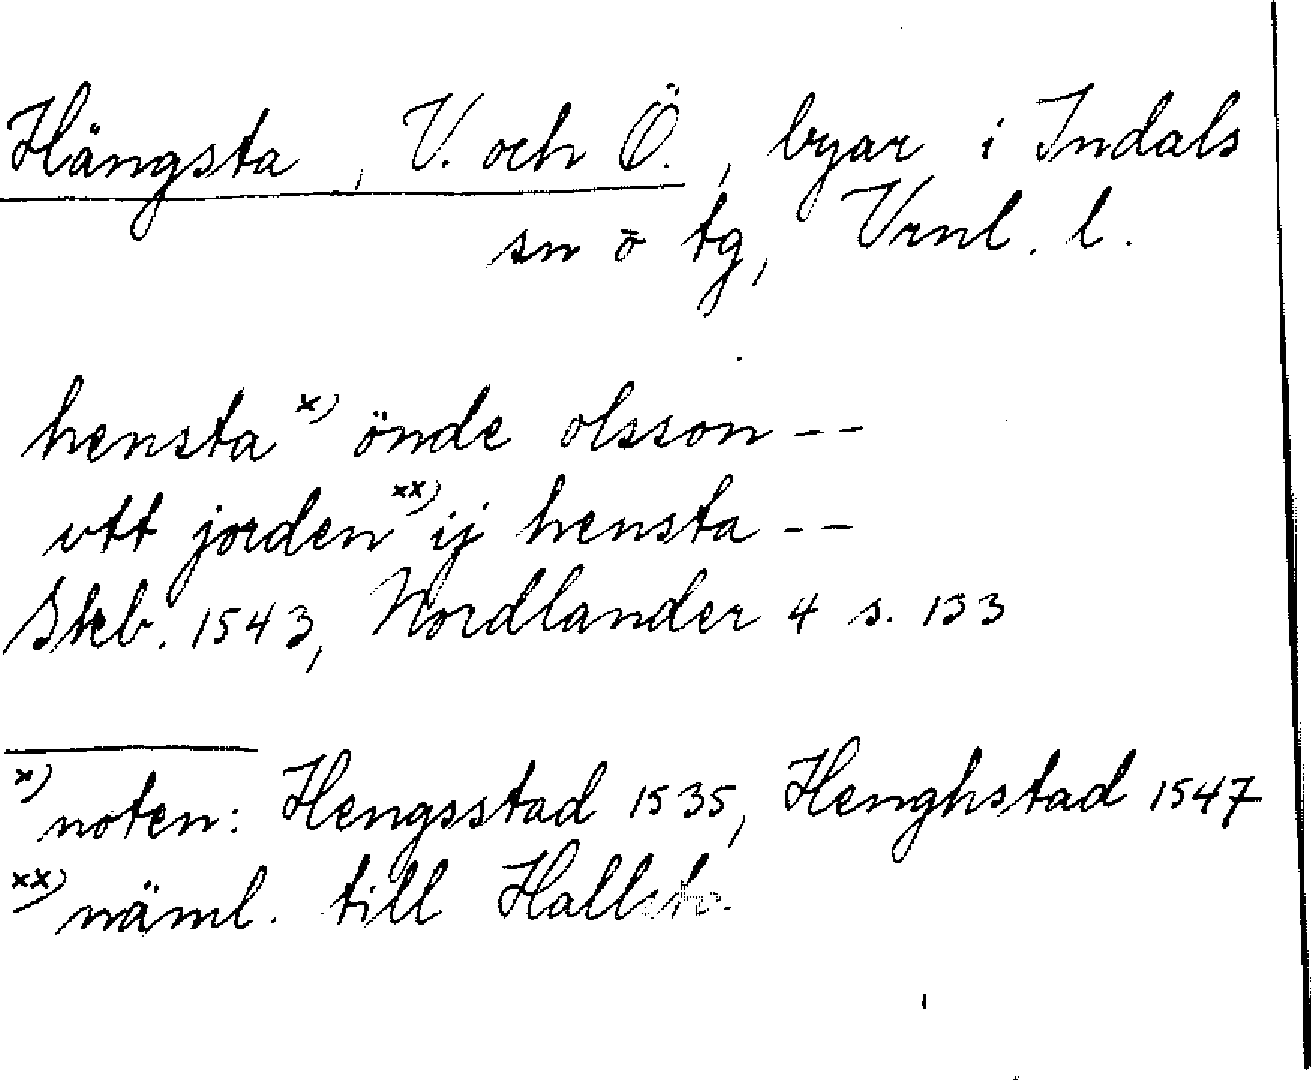 Hängsta, V. och Ö., byar i Indals
sn o tg, Vrnl. l.
hensta x) önde olsson --
vtt jorden xx) ij hensta --
Skb. 1543, Nordlander 4 s. 133
x) noten: Hengsstad 1535, Henghstad 1547
xx) näml. till Hallsta.